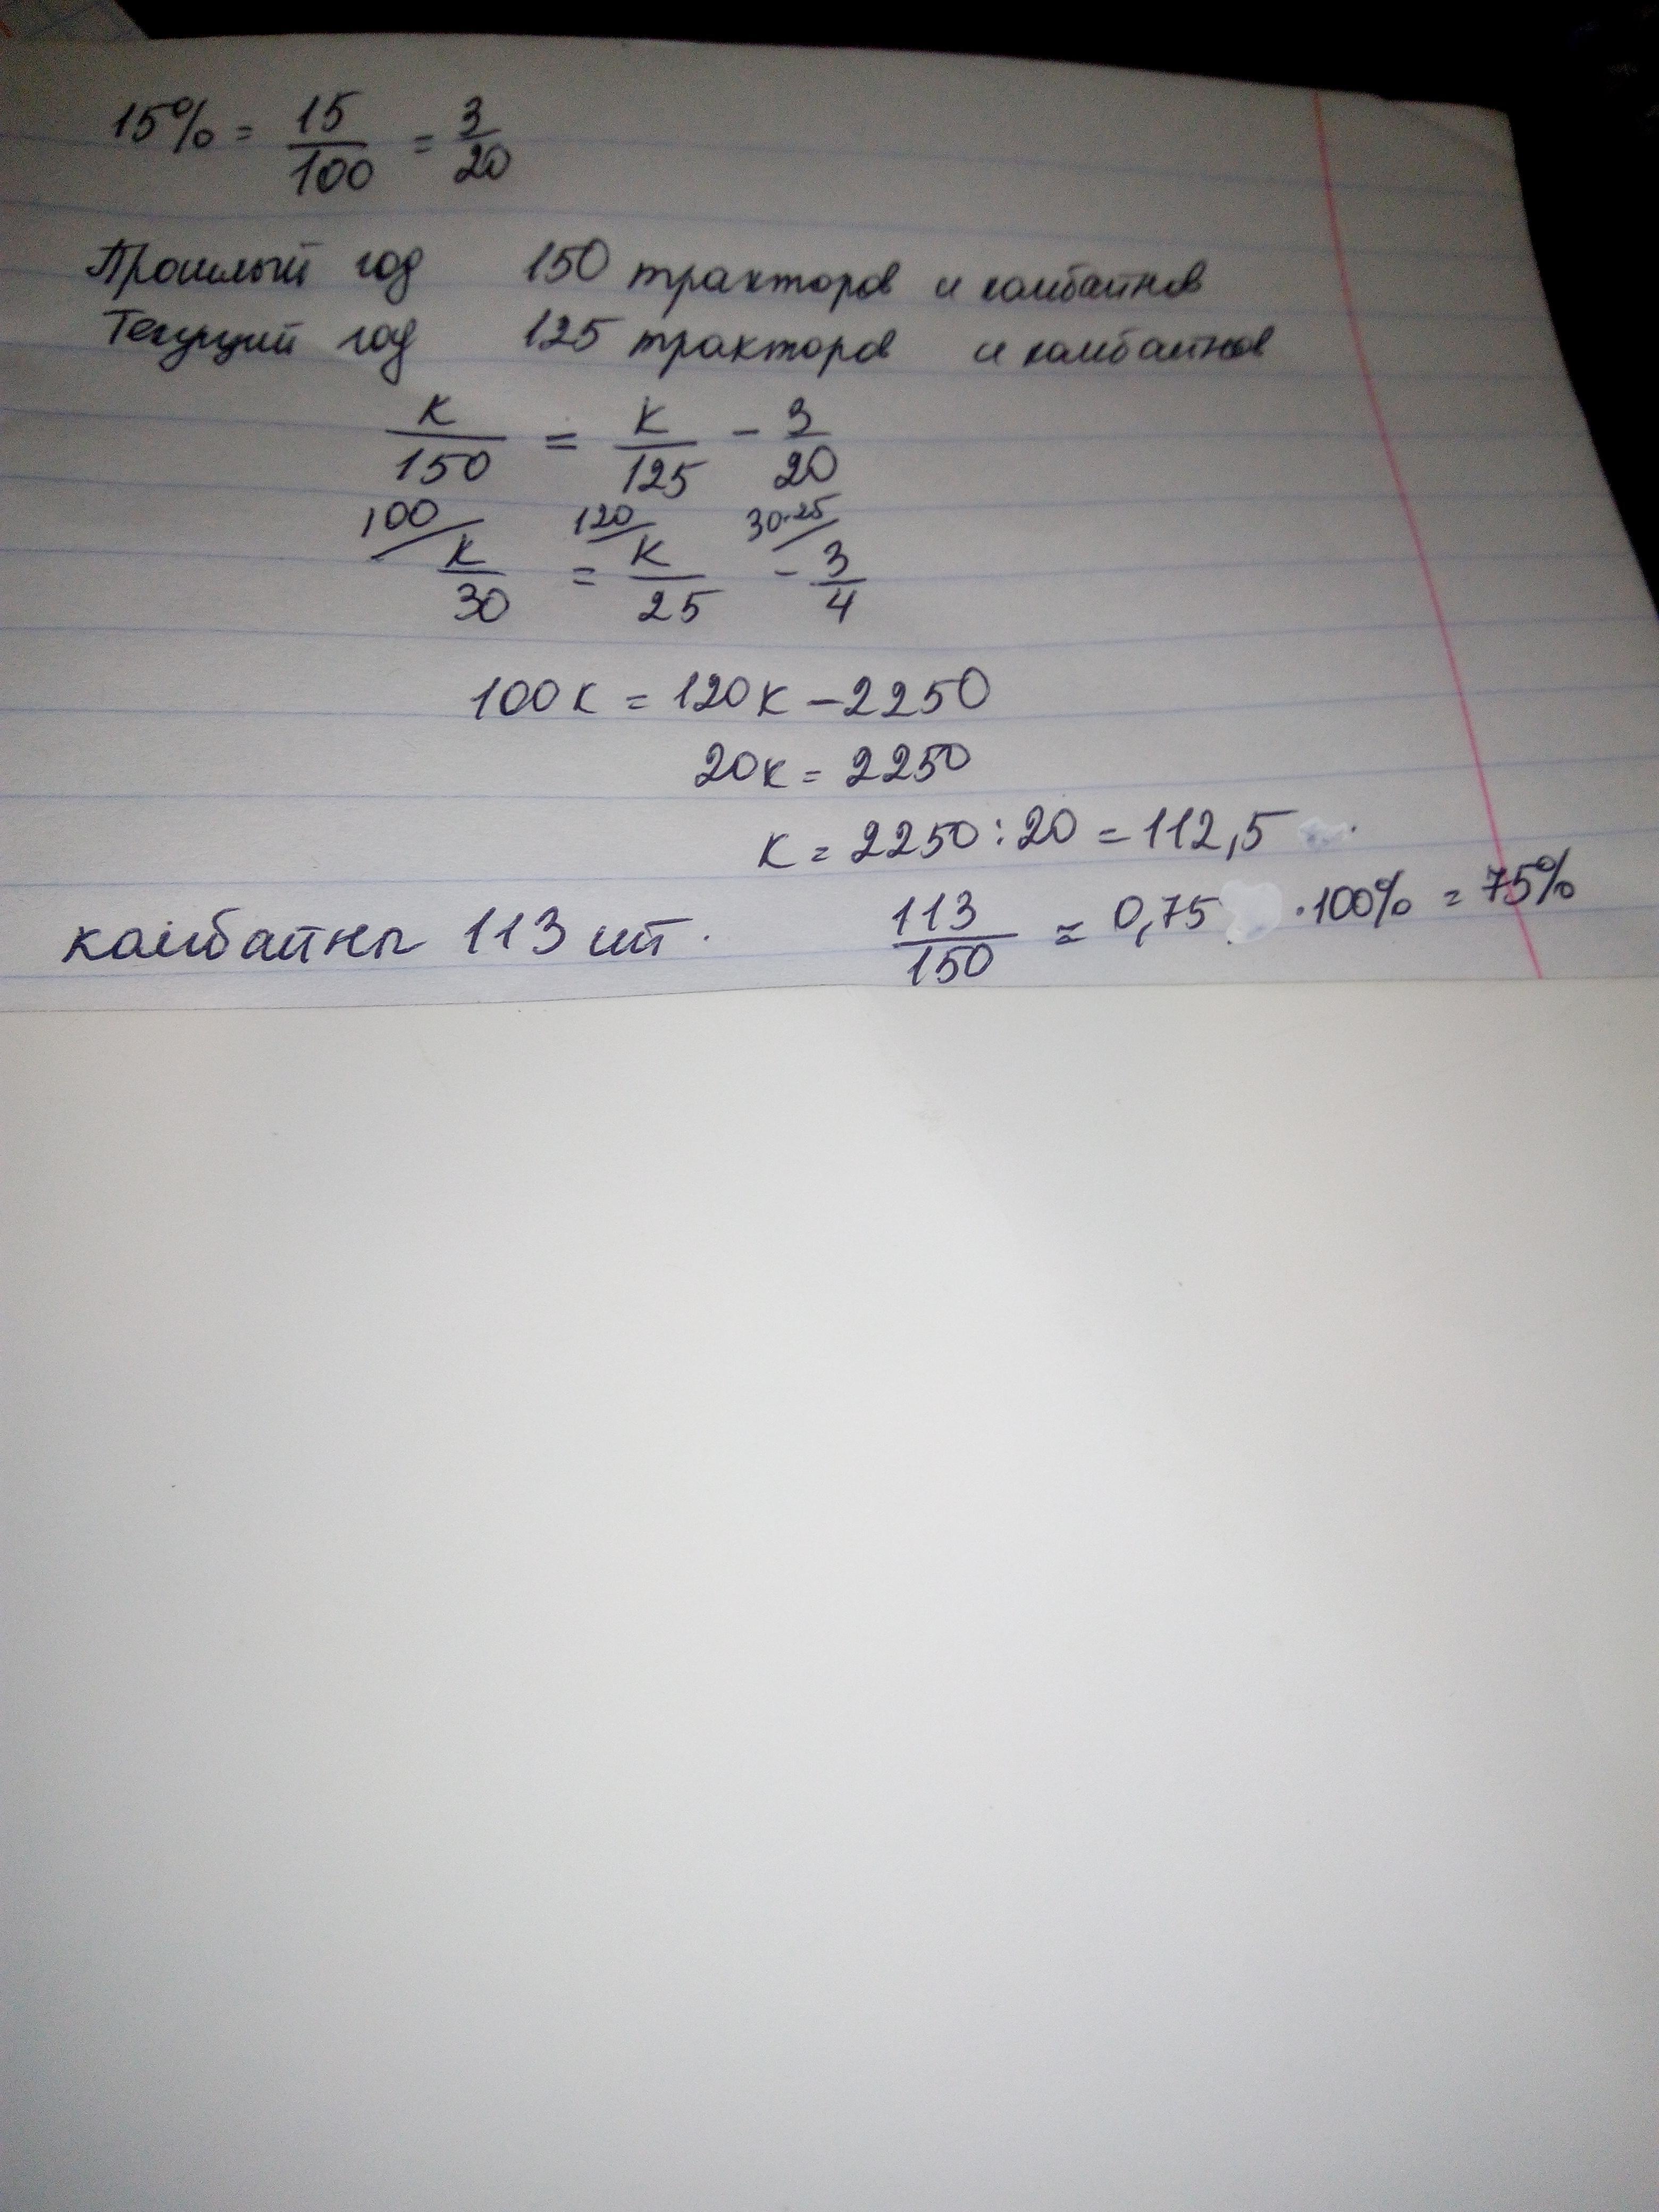 15% = 15/100 = 3/20
Прошлый год 150 тракторов и комбайнов
Текущий год 125 тракторов и комбайнов
к/150 = к/125 - 3/20
100/ 120/ 30·25/
к/30 = к/25 - 3/4
100к = 120к - 2250
20к = 2250
к = 2250 : 20 = 112,5
комбайны 113 шт. 113/150 = 0,75 · 100% = 75%